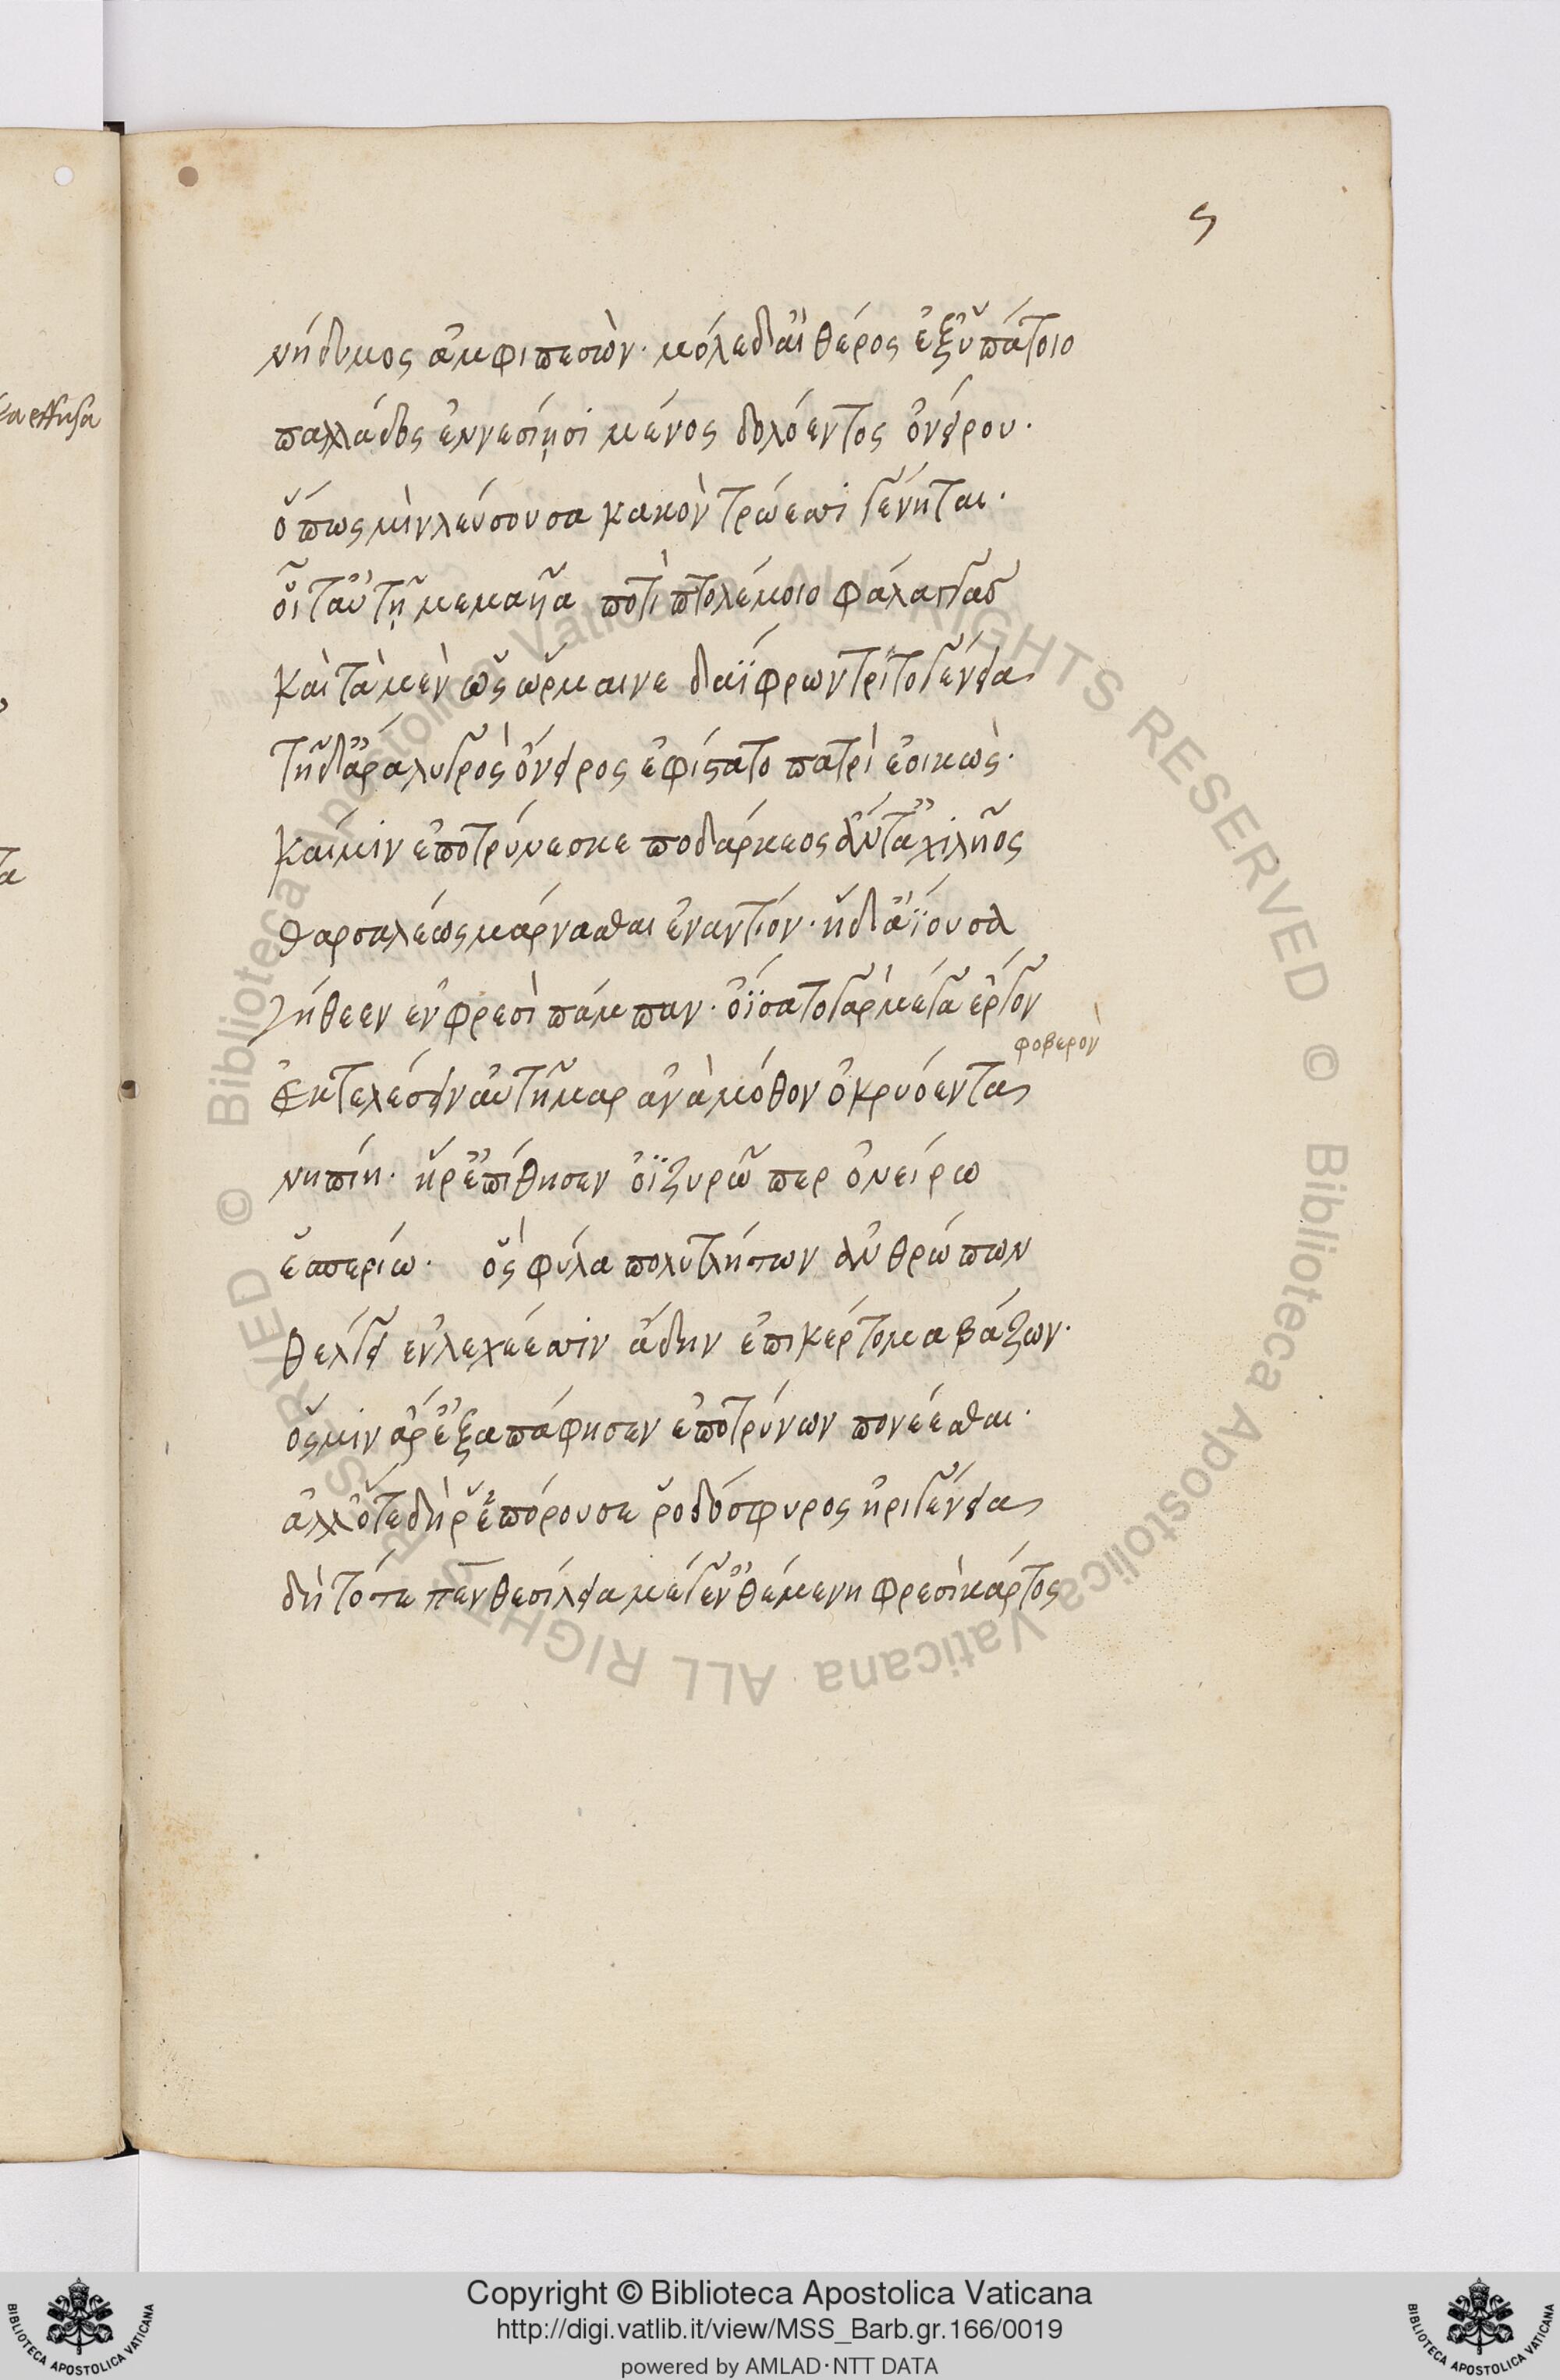 ς
νήδυμος ἀμφιπεσών· μόλε δ' αἰθέρος ἐξ ὑπάτοιο
παλλάδος ἐννεσίῃσι μένος δολόεντος ὀνείρου·
ὅπως μιν λεύσουσα κακὸν τρώεσσι γένηται·
οἷ τ' αὐτῇ μεμαῆα ποτὶ πτολέμοιο φάλαγγας
καὶ τὰ μὲν ὣς ὥρμαινε δαΐφρων τριτογένεια
τῇ δ' ἄρα λυγρὸς ὄνειρος ἐφίστατο πατρὶ ἐοικώς·
καί μιν ἐποτρύνεσκε ποδάρκεος ἄντ' ἀχιλῆος
θαρσαλέως μάρνασθαι ἐναντίον· ἡ δ' ἀΐουσα
γήθεεν ἐν φρεσὶ πάμπαν· ὀΐσατο γὰρ μέγα ἔργον
φοβερὸν
ἐκτελέσειν αὐτῆμαρ ἀνὰ μόθον ὀκρυόεντα
νηπίη· ἥ ῥ' ἐπίθησεν ὀϊζυρῶ περ ὀνείρω
ἑσπερίω· ὃς φύλα πολυτλήτων ἀνθρώπων
θέλγει ἐν λεχέεσσιν ἄδην ἐπικέρτομα βάζων·
ὅς μιν ἄρ' ἐξαπάφησεν ἐποτρύνων πονέεσθαι·
ἀλλ' ὅτε δή ῥ' ἐπόρουσε ῥοδόσφυρος ἠριγένεια
δὴ τότε πενθεσίλεια μέγ' ἐνθεμένη φρεσὶ κάρτος
Copyright © Biblioteca Apostolica Vaticana
http://digi.vatlib.it/view/MSS_Barb.gr.166/0019
powered by AMLAD·NTT DATA